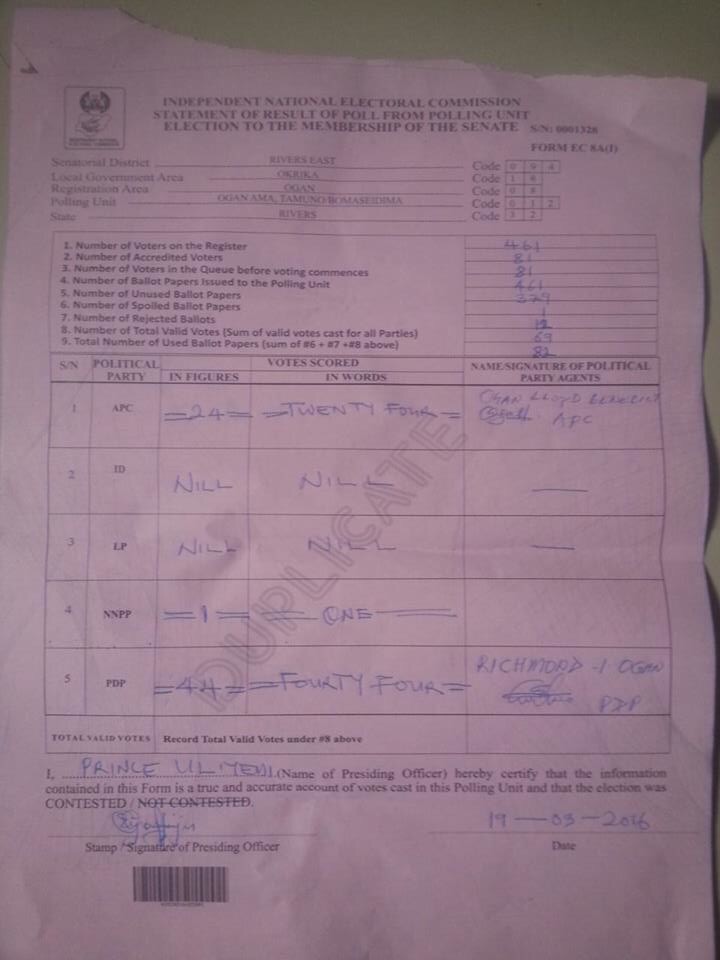 INDEPENDENT NATIONAL ELECTORAL COMMISSION
STATEMENT OF RESULT OF POLL FROM POLLING UNIT
ELECTION TO THE MEMBERSHIP OF THE SENATE S/N: 0001328
FORM EC 8A(I)
Senatorial District RIVERS EAST Code 0 9 4
Local Government Area OKRIKA Code 1 8
Registration Area OGAN Code 0 8
Polling Unit OGAN AMA, TAMUNO/BOMASEIDIMA Code 0 1 2
State RIVERS Code 3 2
1. Number of Voters on the Register 461
2. Number of Accredited Voters 81
3. Number of Voters in the Queue before voting commences 81
4. Number of Ballot Papers Issued to the Polling Unit 461
5. Number of Unused Ballot Papers 379
6. Number of Spoiled Ballot Papers 1
7. Number of Rejected Ballots 12
8. Number of Total Valid Votes (Sum of valid votes cast for all Parties) 69
9. Total Number of Used Ballot Papers (sum of #6 + #7 +#8 above) 82
S/N POLITICAL PARTY VOTES SCORED NAME/SIGNATURE OF POLITICAL PARTY AGENTS
IN FIGURES IN WORDS
1 APC =24= =TWENTY FOUR= OGAN LLOYD BENEDICT
APC
2 ID NILL NILL —
3 LP NILL NILL —
4 NNPP =1= = ONE =
5 PDP =44= =FOURTY FOUR= RICHMOND -I OGAN
PDP
TOTAL VALID VOTES Record Total Valid Votes under #8 above
DUPLICATE
I, PRINCE (Name of Presiding Officer) hereby certify that the information
contained in this Form is a true and accurate account of votes cast in this Polling Unit and that the election was
CONTESTED / NOT CONTESTED.
19 — 03 — 2016
Stamp / Signature of Presiding Officer Date